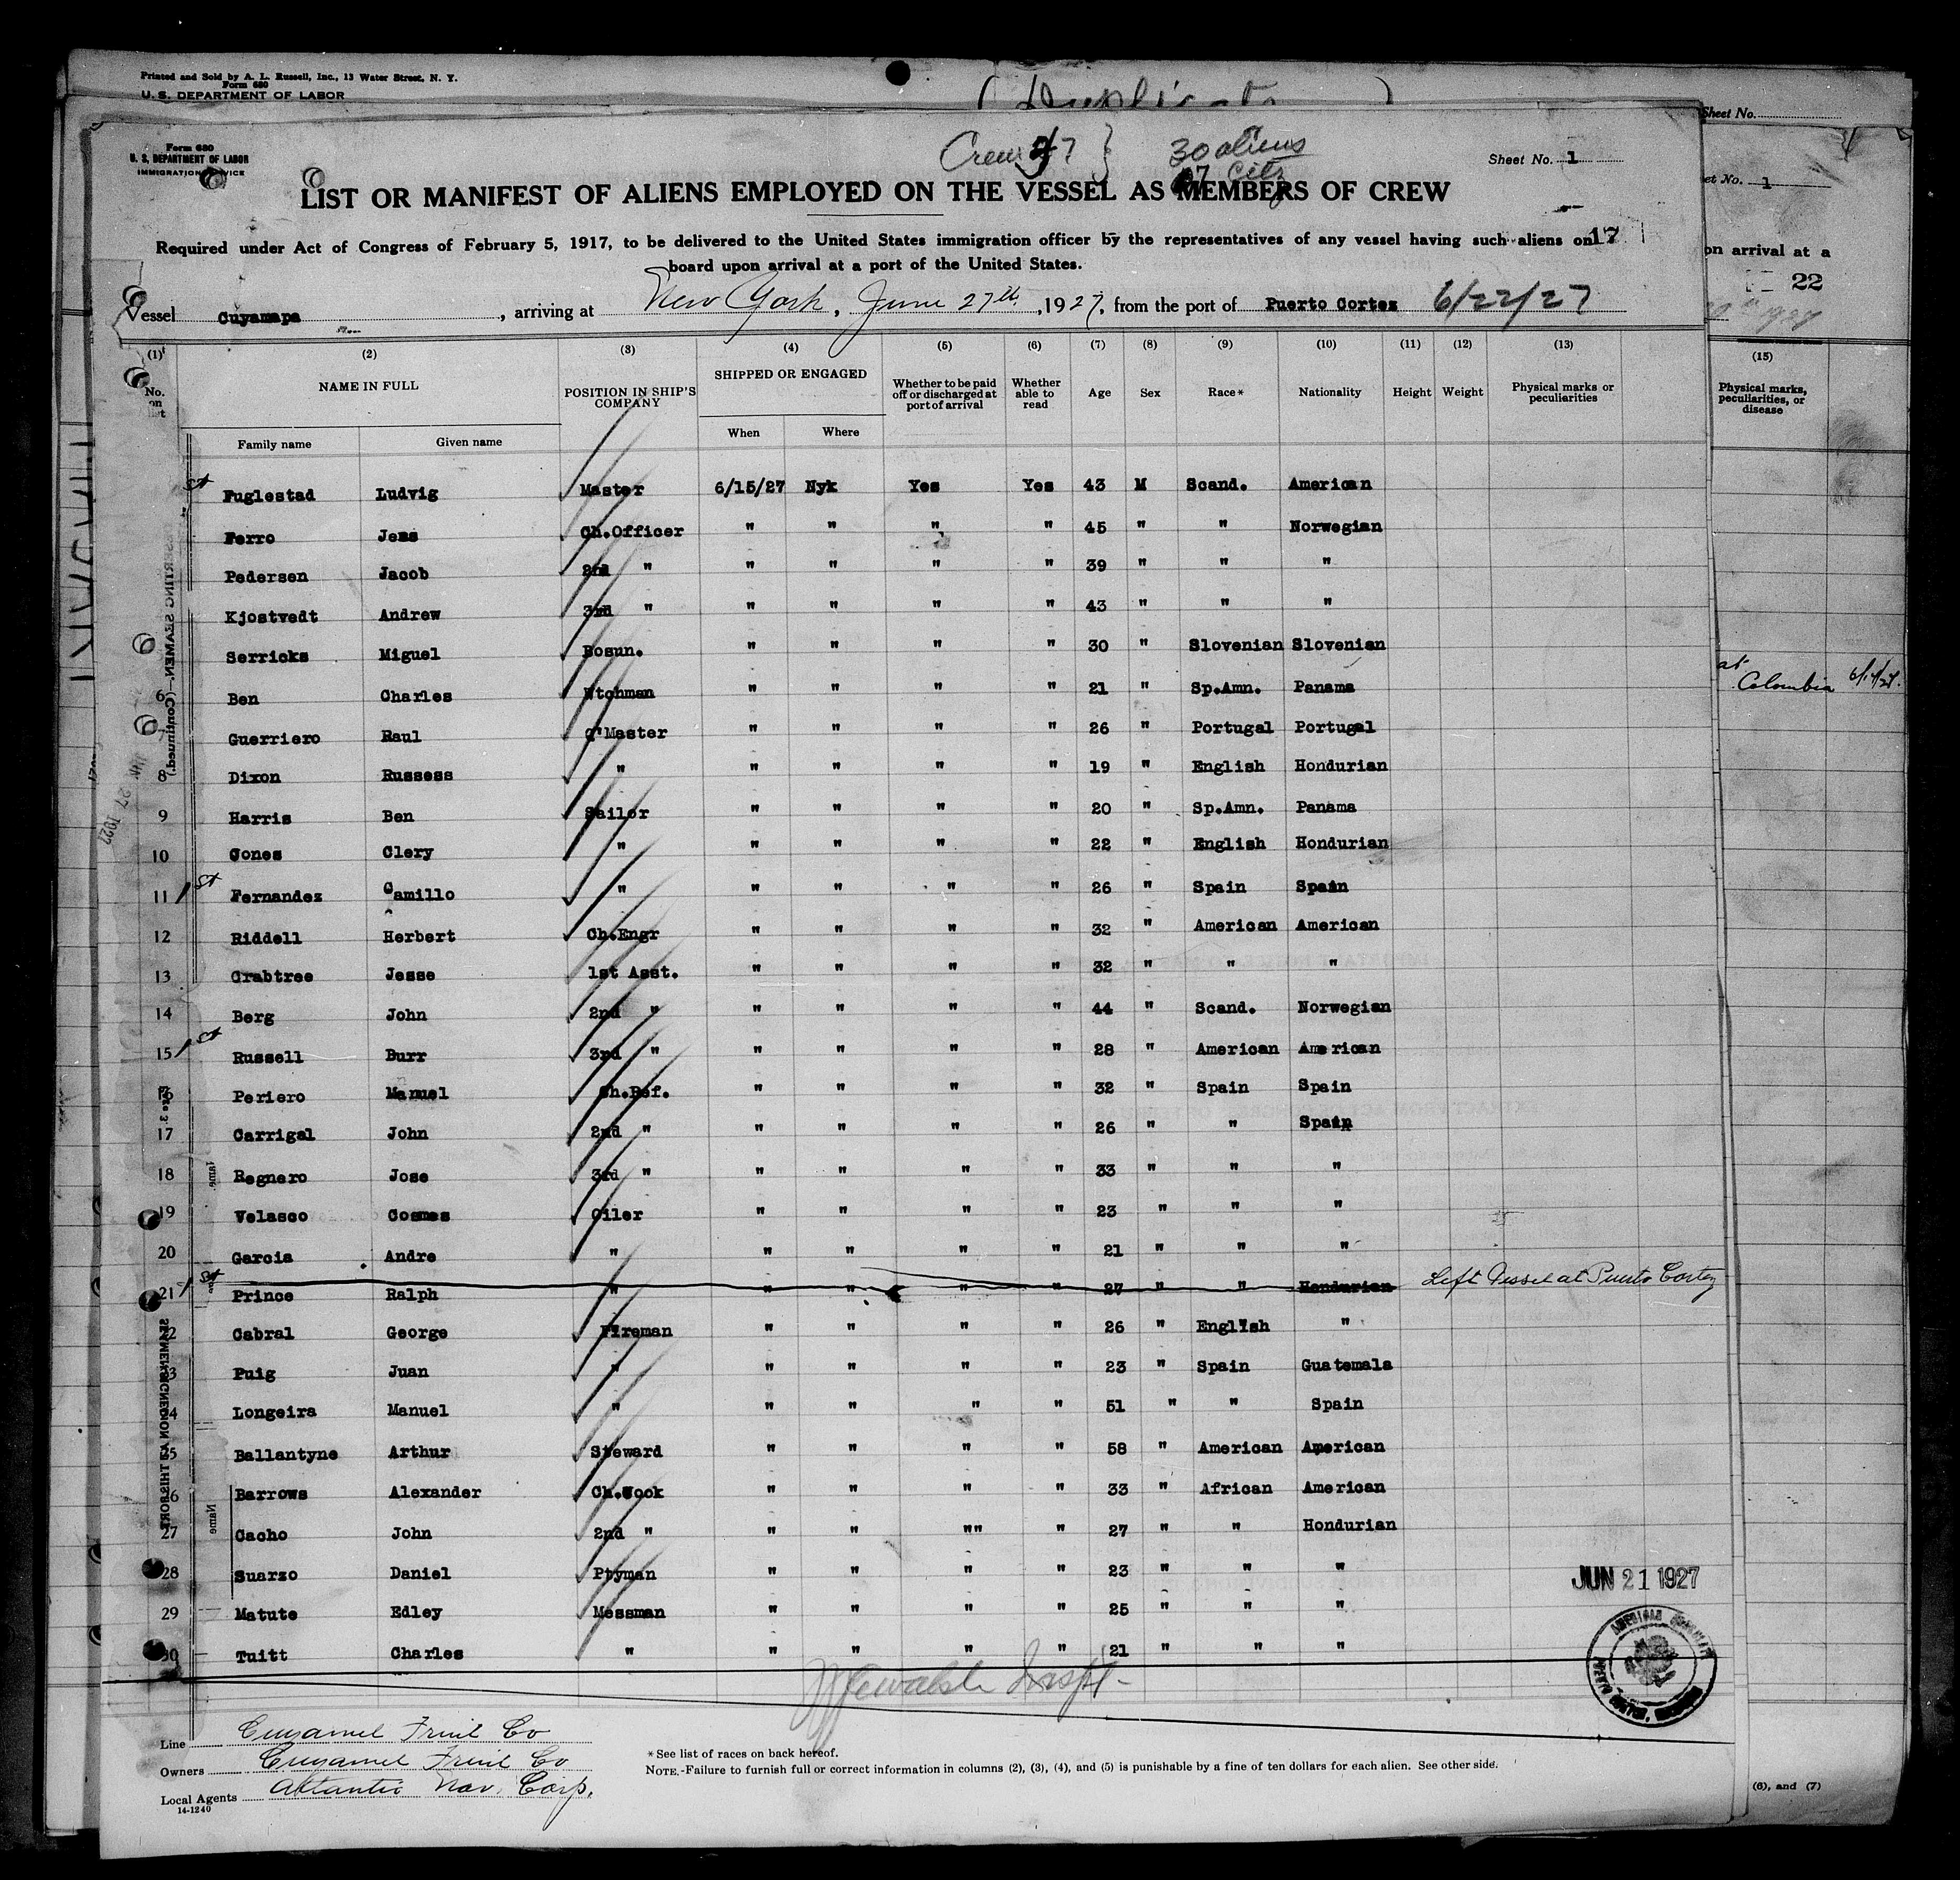 Printed and Sold by A. L. Russell, Inc., 13 Water Street, N. Y.
Form 680
U. S. DEPARTMENT OF LABOR
Sheet No.
Form 680
U. S. DEPARTMENT OF LABOR
IMMIGRATION SERVICE
Crew 37 } 30 aliens
07 Citz
Sheet No. 1
LIST OR MANIFEST OF ALIENS EMPLOYED ON THE VESSEL AS MEMBERS OF CREW
Required under Act of Congress of February 5, 1917, to be delivered to the United States immigration officer by the representatives of any vessel having such aliens on 17
board upon arrival at a port of the United States.
Vessel Cuyamapa, arriving at New York, June 27th, 1927, from the port of Puerto Cortez 6/22/27
(1) (2) (3) (4) (5) (6) (7) (8) (9) (10) (11) (12) (13)
No. on list NAME IN FULL POSITION IN SHIP'S COMPANY SHIPPED OR ENGAGED Whether to be paid off or discharged at port of arrival Whether able to read Age Sex Race* Nationality Height Weight Physical marks or peculiarities
Family name Given name When Where
St Fuglestad Ludvig Master 6/15/27 Nyk Yes Yes 43 M Scand. American
Ferro Jens Ch.Officer " " " " 45 " " Norwegian
Pedersen Jacob 2nd " " " " " 39 " " "
Kjostvedt Andrew 3rd " " " " " 43 " " "
Serricks Miguel Bosun. " " " " 30 " Slovenian Slovenian
6 Ben Charles Wtchman " " " " 21 " Sp.Amn. Panama
7 Guerriero Raul Q'Master " " " " 26 " Portugal Portugal
8 Dixon Russess " " " " " 19 " English Hondurian
9 Harris Ben Sailor " " " " 20 " Sp.Amn. Panama
10 Jones Clery " " " " " 22 " English Hondurian
11 St Fernandez Camillo " " " " " 26 " Spain Spain
12 Riddell Herbert Ch.Engr " " " " 32 " American American
13 Crabtree Jesse 1st Asst. " " " " 32 " " "
14 Berg John 2nd " " " " " 44 " Scand. Norwegian
15 St Russell Burr 3rd " " " " " 28 " American American
16 Periero Manuel Ch.Ref. " " " " 32 " Spain Spain
17 Carrigal John 2nd " " " " " 26 " " Spain
18 Regnero Jose 3rd " " " " " 33 " " "
19 Velasco Cosmes Oiler " " " " 23 " " "
20 Garcia Andre " " " " " 21 " " "
21 St Prince Ralph " " " " " 27 " " Hondurian Left Vessel at Puerto Cortez
22 Cabral George Fireman " " " " 26 " English "
23 Puig Juan " " " " " 23 " Spain Guatemala
24 Longeira Manuel " " " " " 51 " " Spain
25 Ballantyne Arthur Steward " " " " 58 " American American
26 Barrows Alexander Ch.Cook " " " " 33 " African American
27 Cacho John 2nd " " " "" " 27 " " Hondurian
28 Suarzo Daniel Ptyman " " " " 23 " " "
29 Matute Edley Messman " " " " 25 " " "
30 Tuitt Charles " " " " " 21 " " "
JUN 21 1927
Line Cuyamel Fruit Co
Owners Cuyamel Fruit Co
Local Agents Atlantic Nav. Corp.
14-1240
*See list of races on back hereof.
NOTE.-Failure to furnish full or correct information in columns (2), (3), (4), and (5) is punishable by a fine of ten dollars for each alien. See other side.
et No. 1
on arrival at a
22
(15)
Physical marks, peculiarities, or disease
at Colombia
(6), and (7)